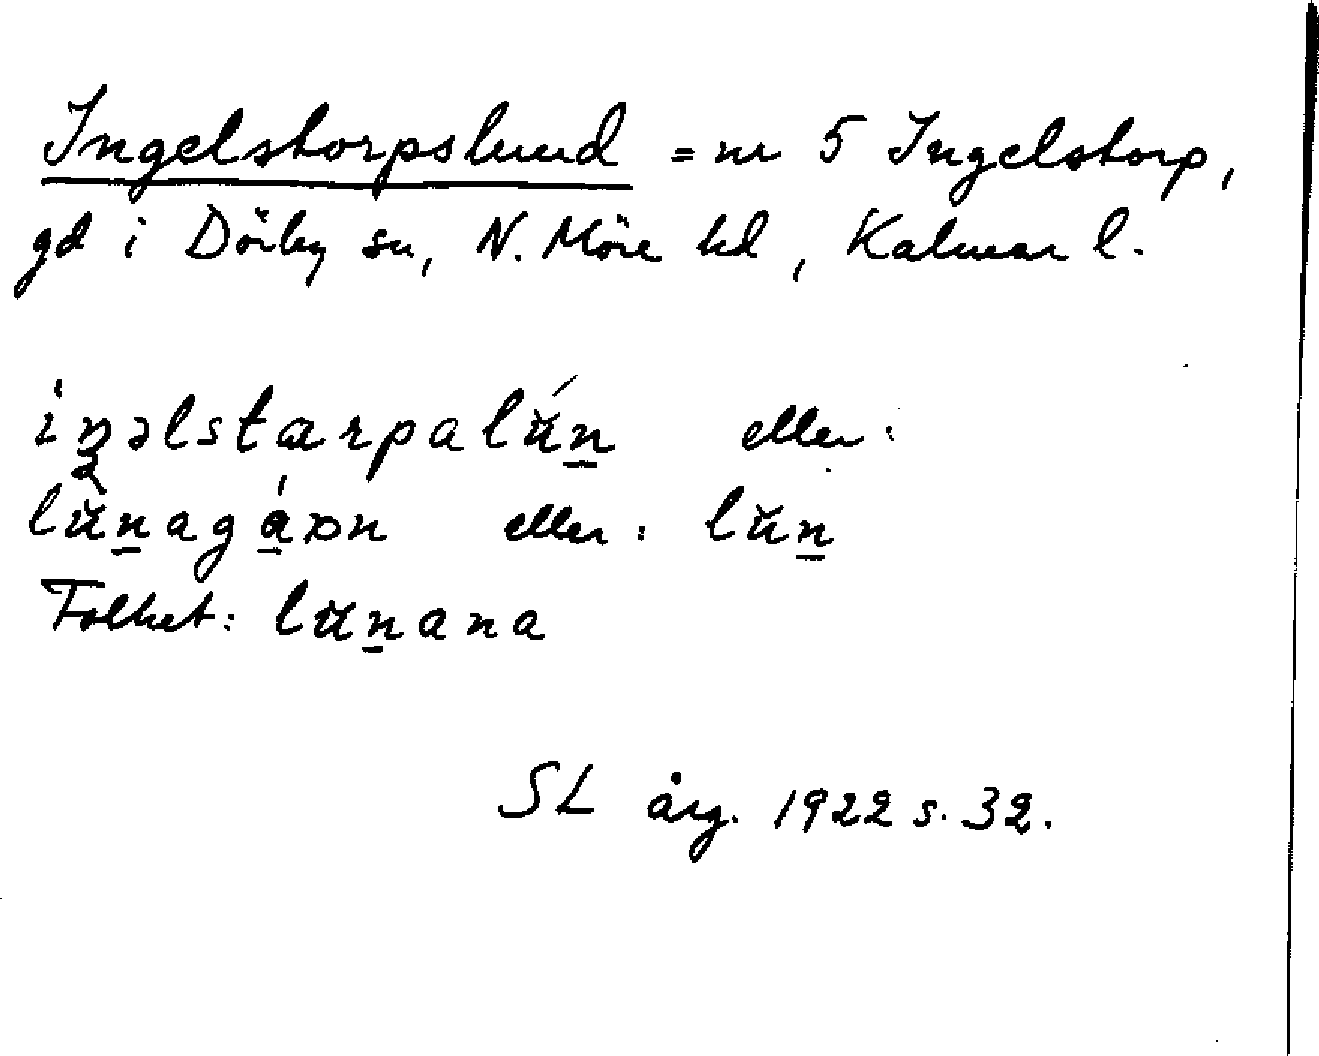 Ingelstorpslund = nr 5 Ingelstorp,
gd i Dörby sn, N. Möre hd, Kalmar l.
iŋəlstarpalŭ́n̲ eller:
lŭ̀n̲agá̲ɒn eller: lŭn̲
Folket: lŭn̲ana
SL årg. 1922 s. 32.